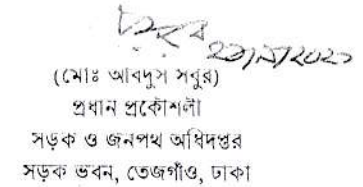 (মোঃ আবদুস সবুর)
প্রধান প্রকৌশলী
সড়ক ও জনপথ অধিদপ্তর
সড়ক ভবন, তেজগাঁও, ঢাকা